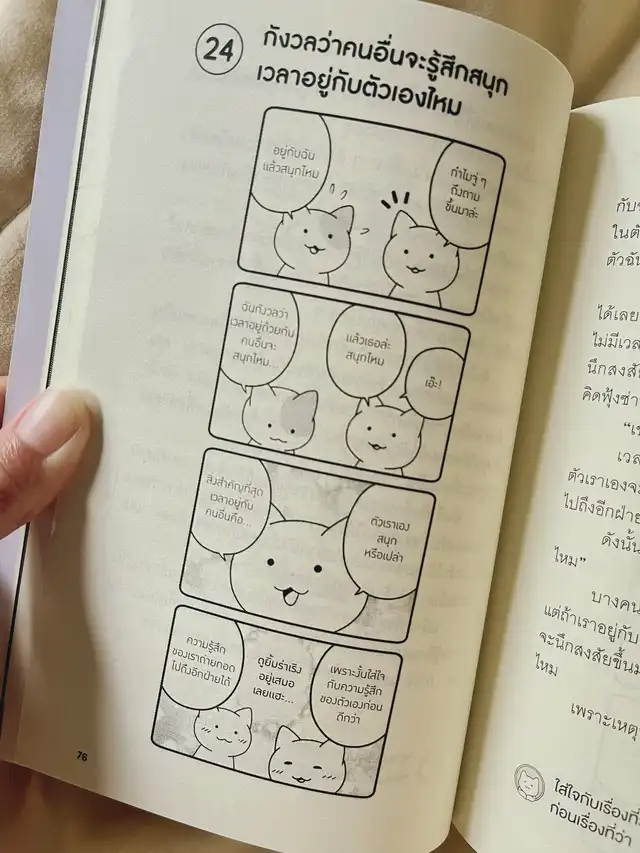 24
กังวลว่าคนอื่นจะรู้สึกสนุก
เวลาอยู่กับตัวเองไหม
อยู่กับฉัน
แล้วสนุกไหม
ทำไมจู่ ๆ
ถึงถาม
ขึ้นมาล่ะ
ฉันกังวลว่า
เวลาอยู่ด้วยกัน
คนอื่นจะ
สนุกไหม...
แล้วเธอล่ะ
สนุกไหม
เอ๊ะ!
สิ่งสำคัญที่สุด
เวลาอยู่กับ
คนอื่นคือ...
ตัวเราเอง
สนุก
หรือเปล่า
ความรู้สึก
ของเราถ่ายทอด
ไปถึงอีกฝ่ายได้
ดูยิ้มร่าเริง
อยู่เสมอ
เลยแฮะ...
เพราะงั้นใส่ใจ
กับความรู้สึก
ของตัวเองก่อน
ดีกว่า
76
ได้เลย
ไม่มีเวล
นึกสงสัย
คิดฟุ้งซ่า
เวล
ตัวเราเองจะ
ไปถึงอีกฝ่าย
ดังนั้น
ไหม”
บางคน
แต่ถ้าเราอยู่กับ
จะนึกสงสัยขึ้นม
ไหม
เพราะเหตุ
ใส่ใจกับเรื่องที่
ก่อนเรื่องที่ว่า